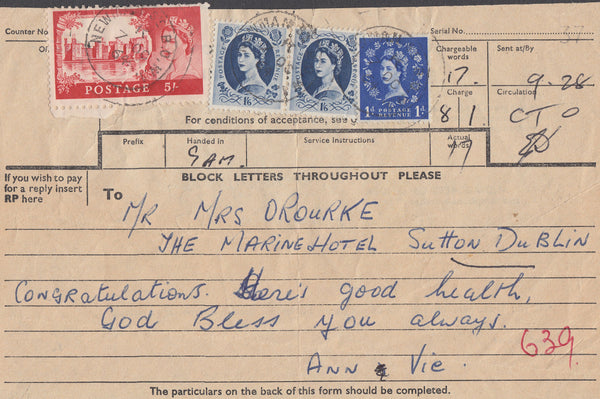 Counter No.
Serial No.
37
Chargeable words
Sent at/By
17.
9.28
Charge
Circulation
8/1
CTO
For conditions of acceptance, see
Prefix
Handed in
Service Instructions
Actual words
9AM.
17
If you wish to pay for a reply insert RP here
BLOCK LETTERS THROUGHOUT PLEASE
To
MR MRS OROURKE
THE MARINE HOTEL SUTTON DUBLIN
CONGRATULATIONS. Here's good health,
GOD BLESS YOU always.
ANN & VIC.
639
The particulars on the back of this form should be completed.
POSTAGE 5/-
POSTAGE REVENUE 1/6
POSTAGE REVENUE 1/6
1d POSTAGE REVENUE 1d